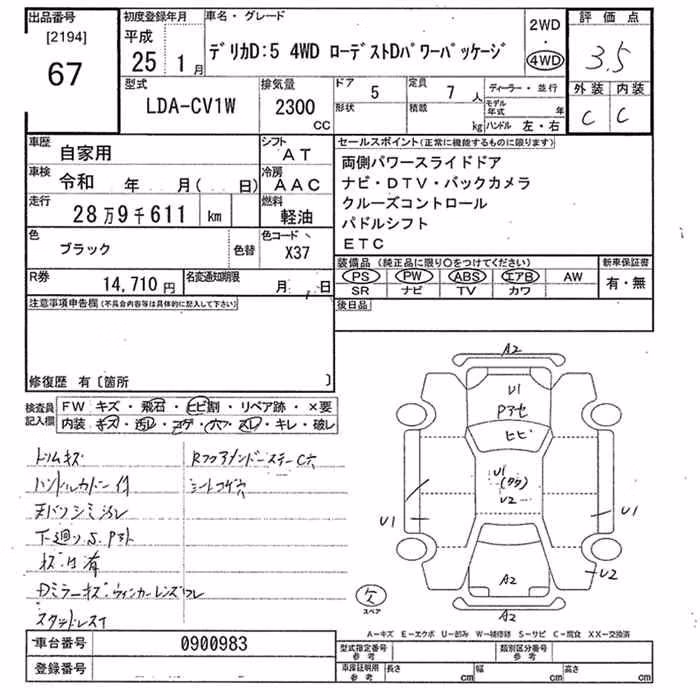 出品番号
[2194]
67
初度登録年月
平成
25 1月
車名・グレード
デリカD:5 4WD ローデストDパワーパッケージ
2WD
・
4WD
評価点
3.5
外装 内装
C C
型式
LDA-CV1W
排気量
2300
CC
ドア
5
形状
定員
7 人
積載
kg
ディーラー・並行
モデル年式 年
ハンドル 左・右
車歴
自家用
シフト
AT
車検
令和 年 月( 日)
冷房
AAC
走行
28万9千611 km
燃料
軽油
色
ブラック
色替
色コード
X37
R券
14,710 円
名変通知期限
月 日
セールスポイント(正常に機能するものに限ります)
両側パワースライドドア
ナビ・DTV・バックカメラ
クルーズコントロール
パドルシフト
ETC
装備品 (純正品に限り○をつけてください)
PS PW ABS エアB AW
SR ナビ TV カワ
新車保証書
有・無
後日品
注意事項申告欄(不具合内容等は具体的に記入して下さい)
修復歴 有〔箇所 〕
検査員記入欄
FW キズ・飛石・ヒビ割・リペア跡・×要
内装 キズ・汚レ・コゲ・穴・スレ・キレ・破レ
トリムキズ
ハンドルカバー付
天バリシミ汚レ
下廻りS.Pアト
キズ凹有
Dミラーキズ・ウィンカーレンズワレ
スタッドレスT
シートコゲ穴
A2
U1
Pアセ
ヒビ
U1
U2
U1
U1
U2
A2
A2
スペア
A-キズ E-エクボ U-凹み W-補修跡 S-サビ C-腐食 XX-交換済
車台番号
0900983
登録番号
型式指定番号
参考
類別区分番号
参考
車庫証明用
参考
長さ cm
幅 cm
高さ cm